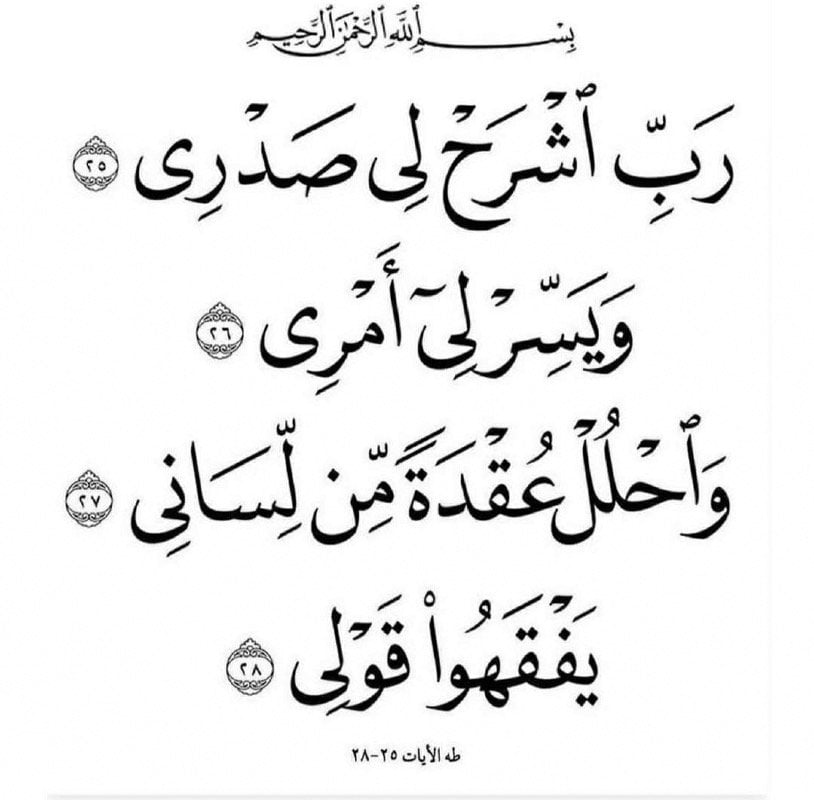 بِسْمِ ٱللَّهِ ٱلرَّحْمَٰنِ ٱلرَّحِيمِ
رَبِّ ٱشْرَحْ لِى صَدْرِى ٢٥
وَيَسِّرْ لِىٓ أَمْرِى ٢٦
وَٱحْلُلْ عُقْدَةً مِّن لِّسَانِى ٢٧
يَفْقَهُوا۟ قَوْلِى ٢٨
طه الأيات ٢٥-٢٨